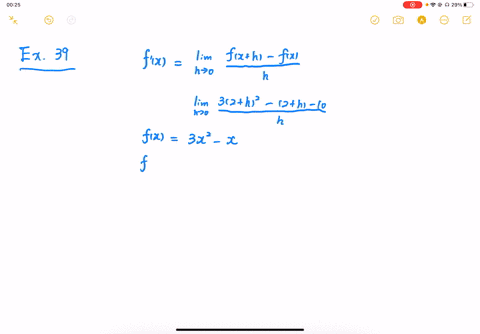 00:25
29%
Ex. 39
f'(x) = lim h→0 f(x+h) - f(x) / h
lim h→0 3(2+h)² - (2+h) - 10 / h
f(x) = 3x² - x
f